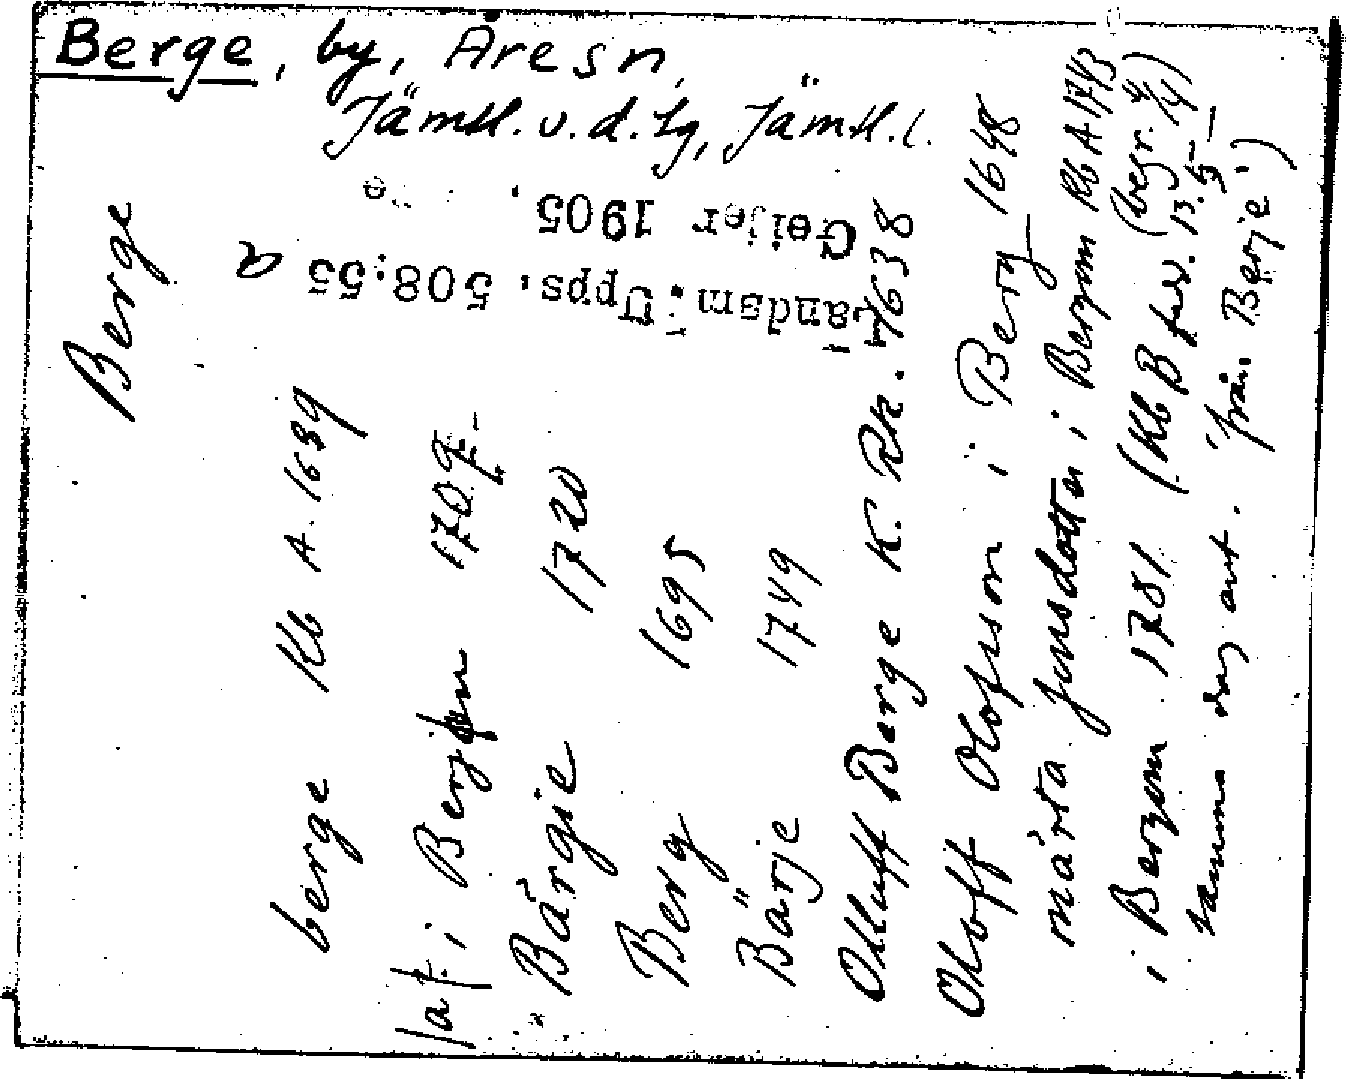 Berge, by, Åre sn,
Jämtl. v. d. tg, Jämtl. l.
Landsm. Upps. 508:55 a
Geijer 1905.
Berge
berge Kb A. 1639
i Bergen 170
Bärgie 1720
Berg 1695
Bärje 1749
Olluff Berge K. Rk. 1638
Oloff Olofsson i Berg 1648
märta Jonsdotter i Bergom Kb A 1743
i Bergom 1781 (Kb B febr. 13. (begr.
samma dag ant. 'från Berje')